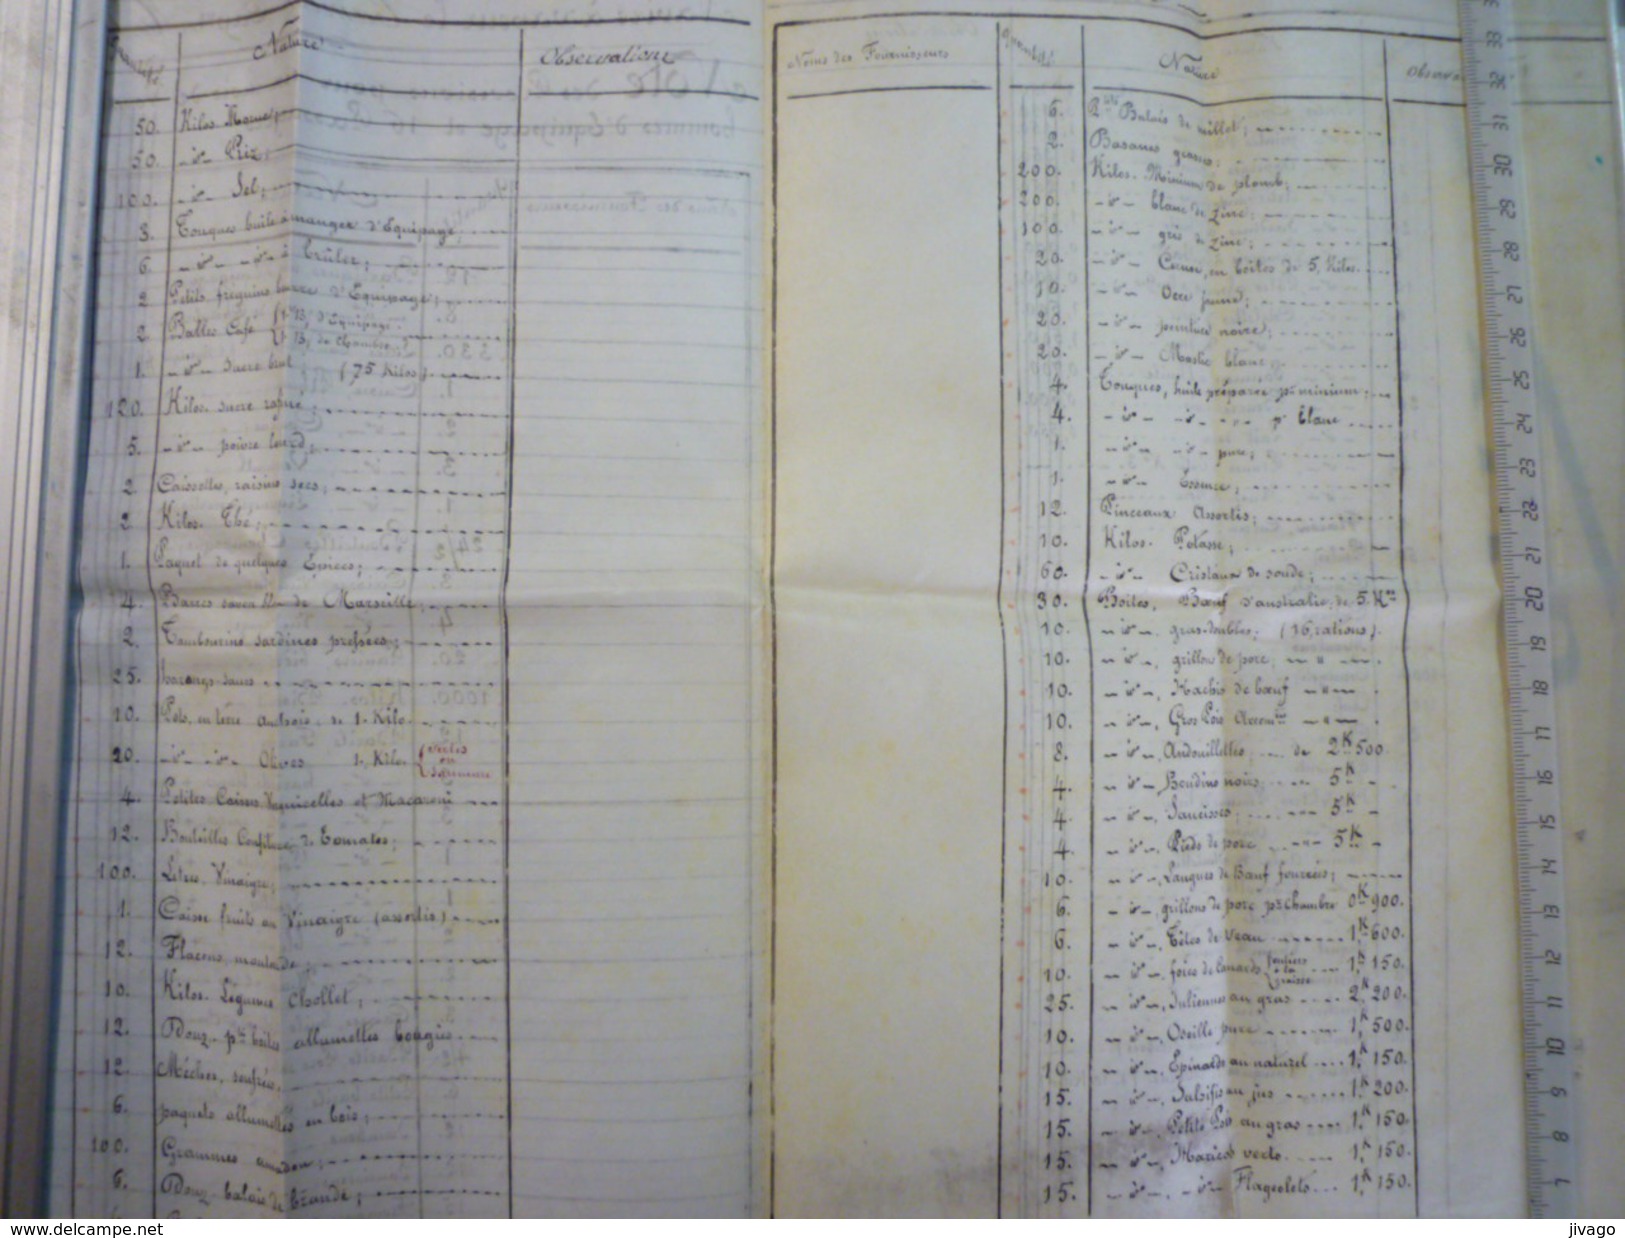 Quantités Nature Observations
50. Kilos Morue;
50. -d°- Riz;
100. -d°- Sel;
3. Touques huile à manger d'Equipage,
6. -d°- -d°- à brûler;
2 Petits fréquins beurre d'Equipage;
2 Balles Café { 1 B, d'Equipage.
1 B, de Chambre.
1. -d°- sucre brut (75 Kilos)
120. Kilos. sucre raffiné;
5. -d°- poivre lourd;
2 Caissettes, raisins secs;
2 Kilos. Thé;
1. Paquet de quelques Epices;
4. Barres savon de Marseille;
2. Tambourins sardines pressées;
25. harengs-saurs
10. Pots, en terre anchois. de 1. Kilo.
20. -d°- -d°- Olives 1. Kilo.
4. Petites Caisses Vermicelles et Macaroni
12. Bouteilles Confiture de Tomates;
100. Litres. Vinaigre;
1. Caisse fruits au Vinaigre (assortis)
12. Flacons, moutarde;
10. Kilos. Légumes Chollet;
12. Douz. ptes boîtes allumettes bougies
12. Mèches, soufrées.
6. paquets allumettes en bois;
100. Grammes amadou;
6. Douz. balais de brande;
Noms des Fournisseurs Quantités Nature
6. Balais de millet;
2. Basanes grasses;
200. Kilos. Minium de plomb;
200. -d°- blanc de zinc;
100. -d°- gris de zinc;
20. -d°- Ceruse, en boîtes de 5, Kilos.
10. -d°- Ocre jaune;
20. -d°- peinture noire;
20. -d°- Mastic blanc
4. Touques, huile préparée pr minium;
4. -d°- -d°- -d°- pr blanc
1. -d°- -d°- pure;
1. -d°- Essence;
12. Pinceaux Assortis;
10. Kilos. Potasse;
60. -d°- Cristaux de soude;
30. Boîtes, Bœuf d'australie, de 5. Kos
10. -d°-. gras-doubles; (16, rations).
10. -d°-. grillon de porc,
10. -d°-. Hachis de bœuf
10. -d°-, Gros Pois
8. -d°-, Andouillettes, de 2K 500.
4. -d°-, Boudins noirs, 5K
4. -d°-, Saucisses; 5K
4. -d°-, Pieds de porc 5K
10. -d°-, Langues de Bœuf fourrées;
6. -d°-, grillons de porc pr chambre 0K 900.
6. -d°-, Têtes de veau 1,K 600.
10. -d°-, foies de Canards { à la graisse 1,K 150.
25. -d°-, Juliennes au gras 2,K 200.
10. -d°-, Oseille pure 1,K 500.
10. -d°-, Epinards au naturel 1,K 150.
15. -d°-, Salsifis au jus 1,K 200.
15. -d°-, Petits Pois au gras 1,K 150.
15. -d°-, Haricots verts 1,K 150.
15. -d°-. -d°- Flageolets 1,K 150.
www.delcampe.net jivago